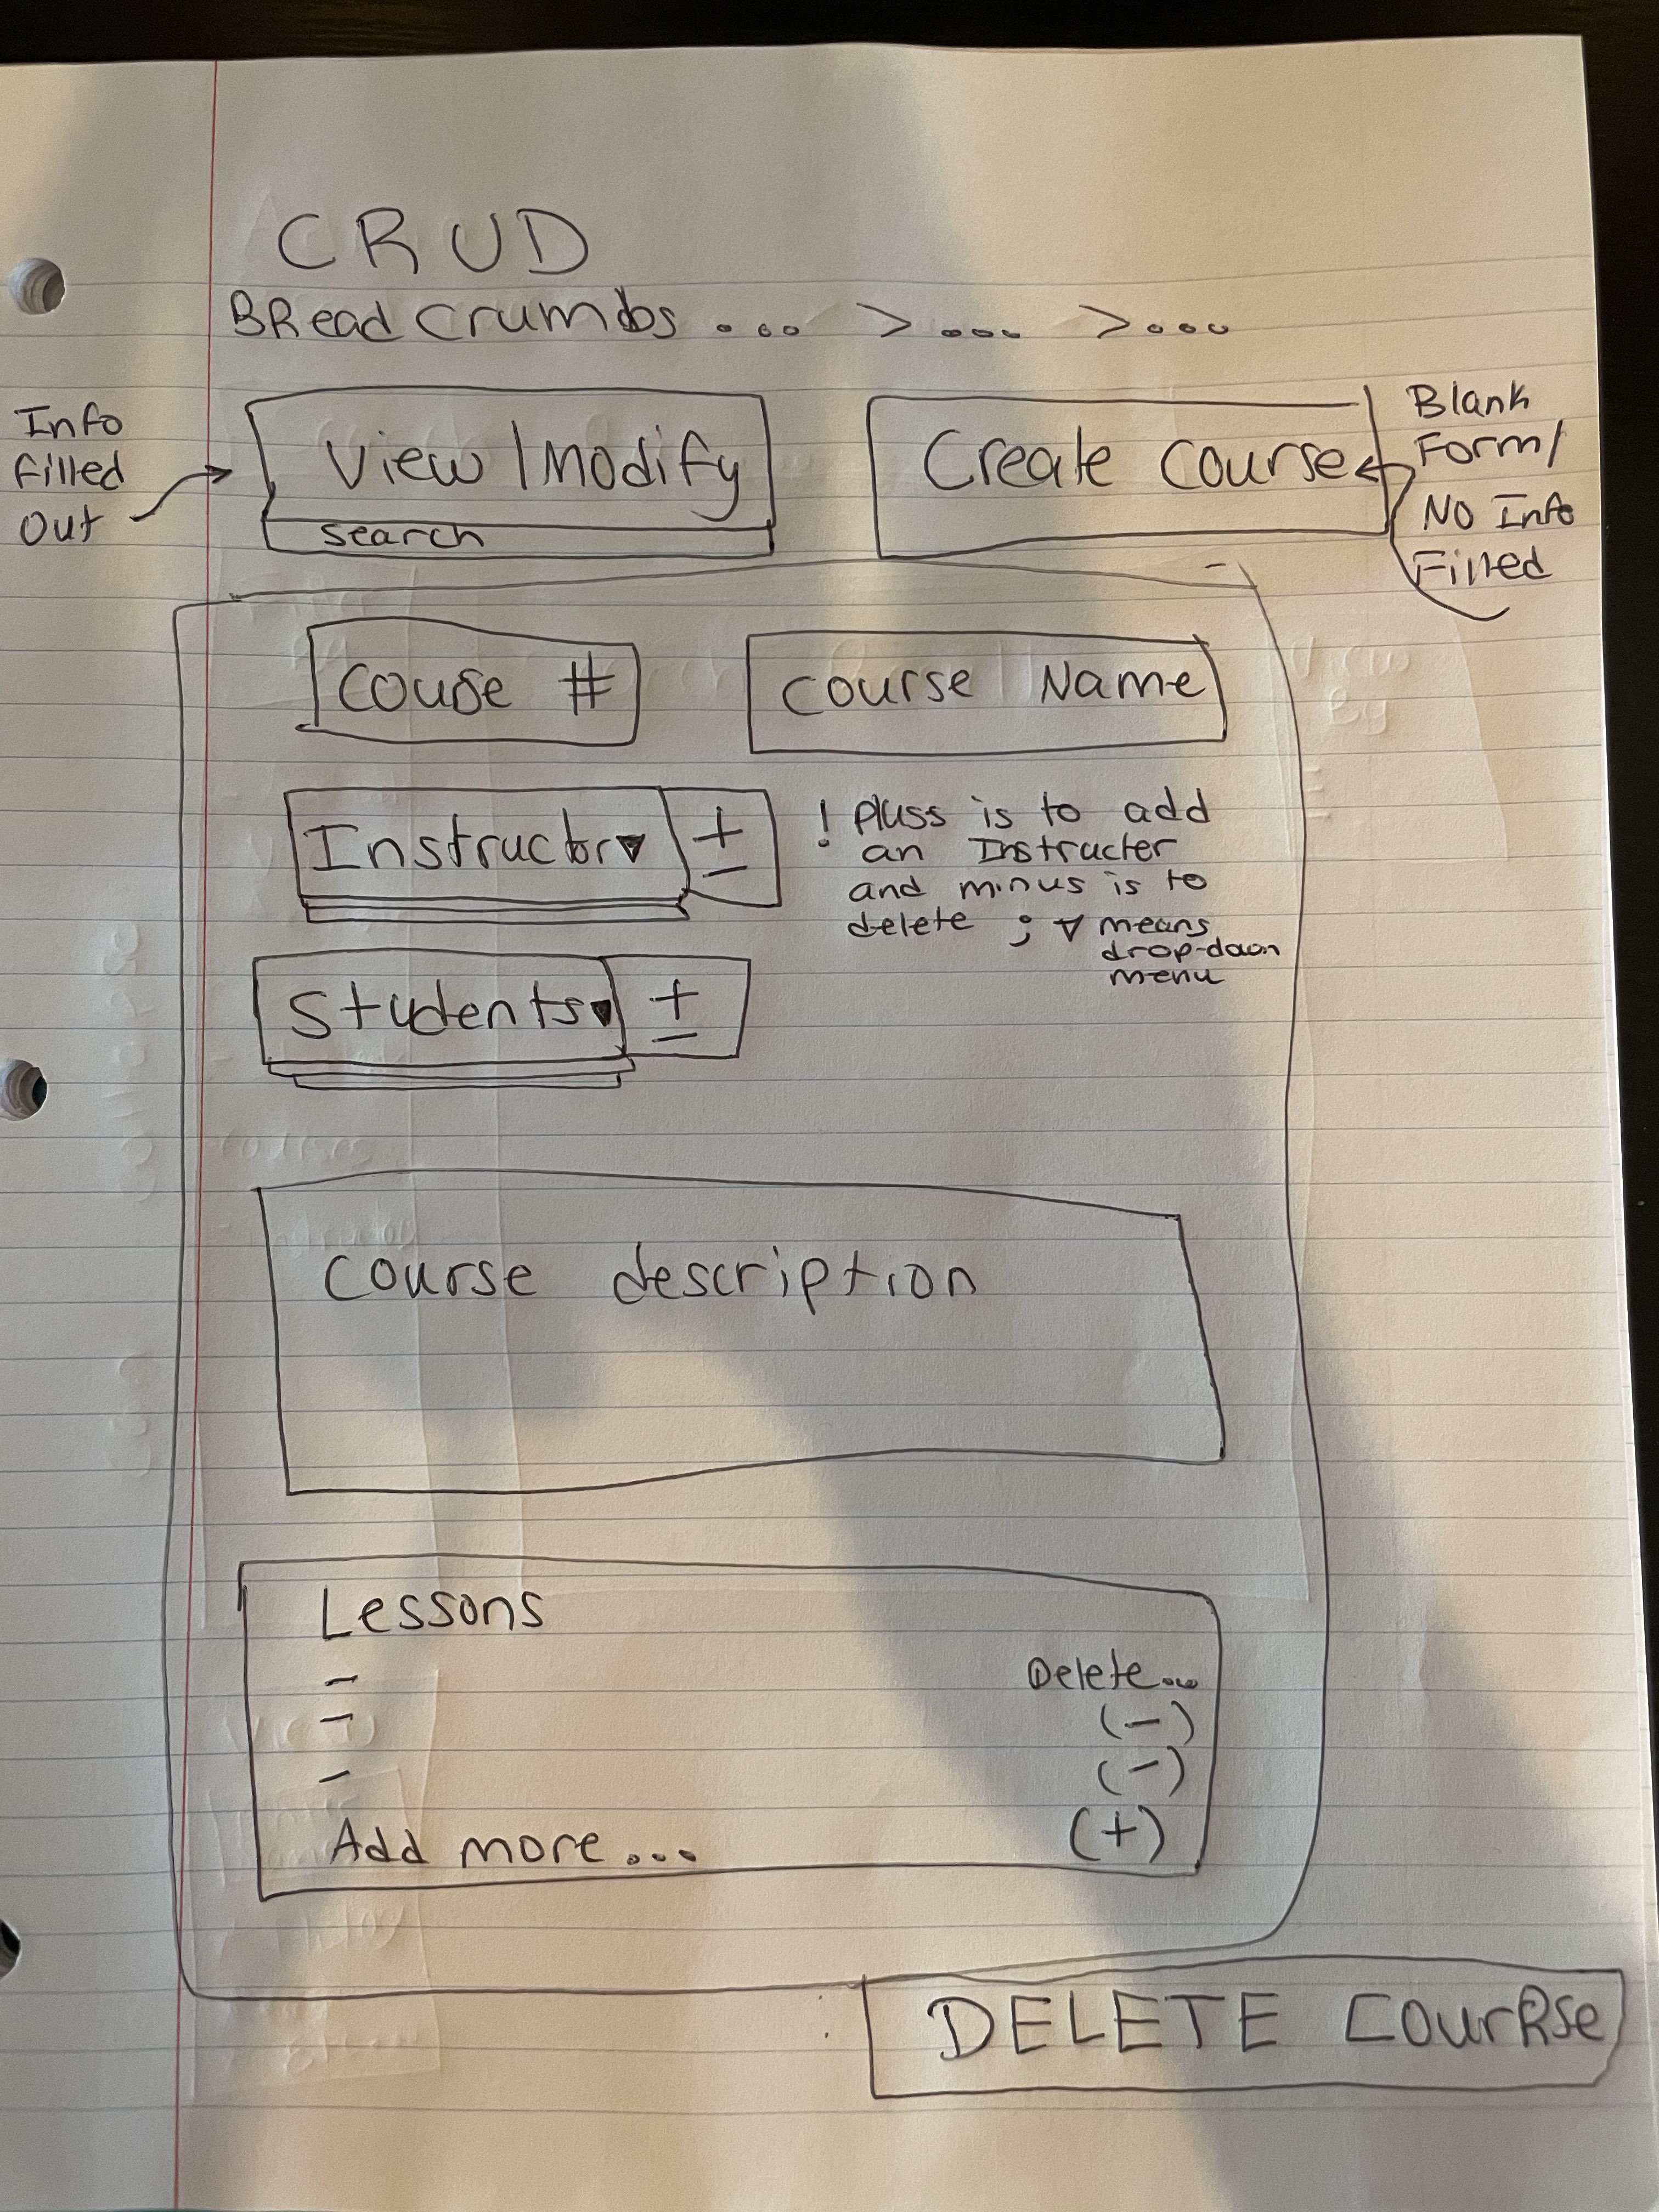 CRUD
BReadcrumbs .... > .... > ....
Info
filled
out
View | Modify
search
Create course
Blank
Form/
No Info
Filled
Couse #
Course Name
Instructor▾
+
−
! Pluss is to add
an Instructer
and minus is to
delete ; ▿ means
drop-down
menu
Students▾
+
−
Course description
Lessons
- Delete...
- (-)
- (-)
Add more... (+)
DELETE CourRse